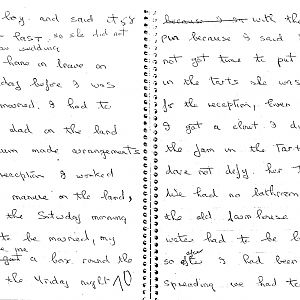 day, and said it's
fast, so she did not
wedding
have in leave on
day before I was
married. I had to
dad on the land
mum made arrangements
reception I worked
manure on the land,
the Saturday morning
to be married, my
me
a box round the
the Friday night 10
with th
pin because I said I
not got time to put
in the tarts she was
for the reception, Even
I got a clout I di
the jam in the tart
dare not defy her. T
We had no bathroom
the old farm house
water had to be b
so I had been
spreading we had to